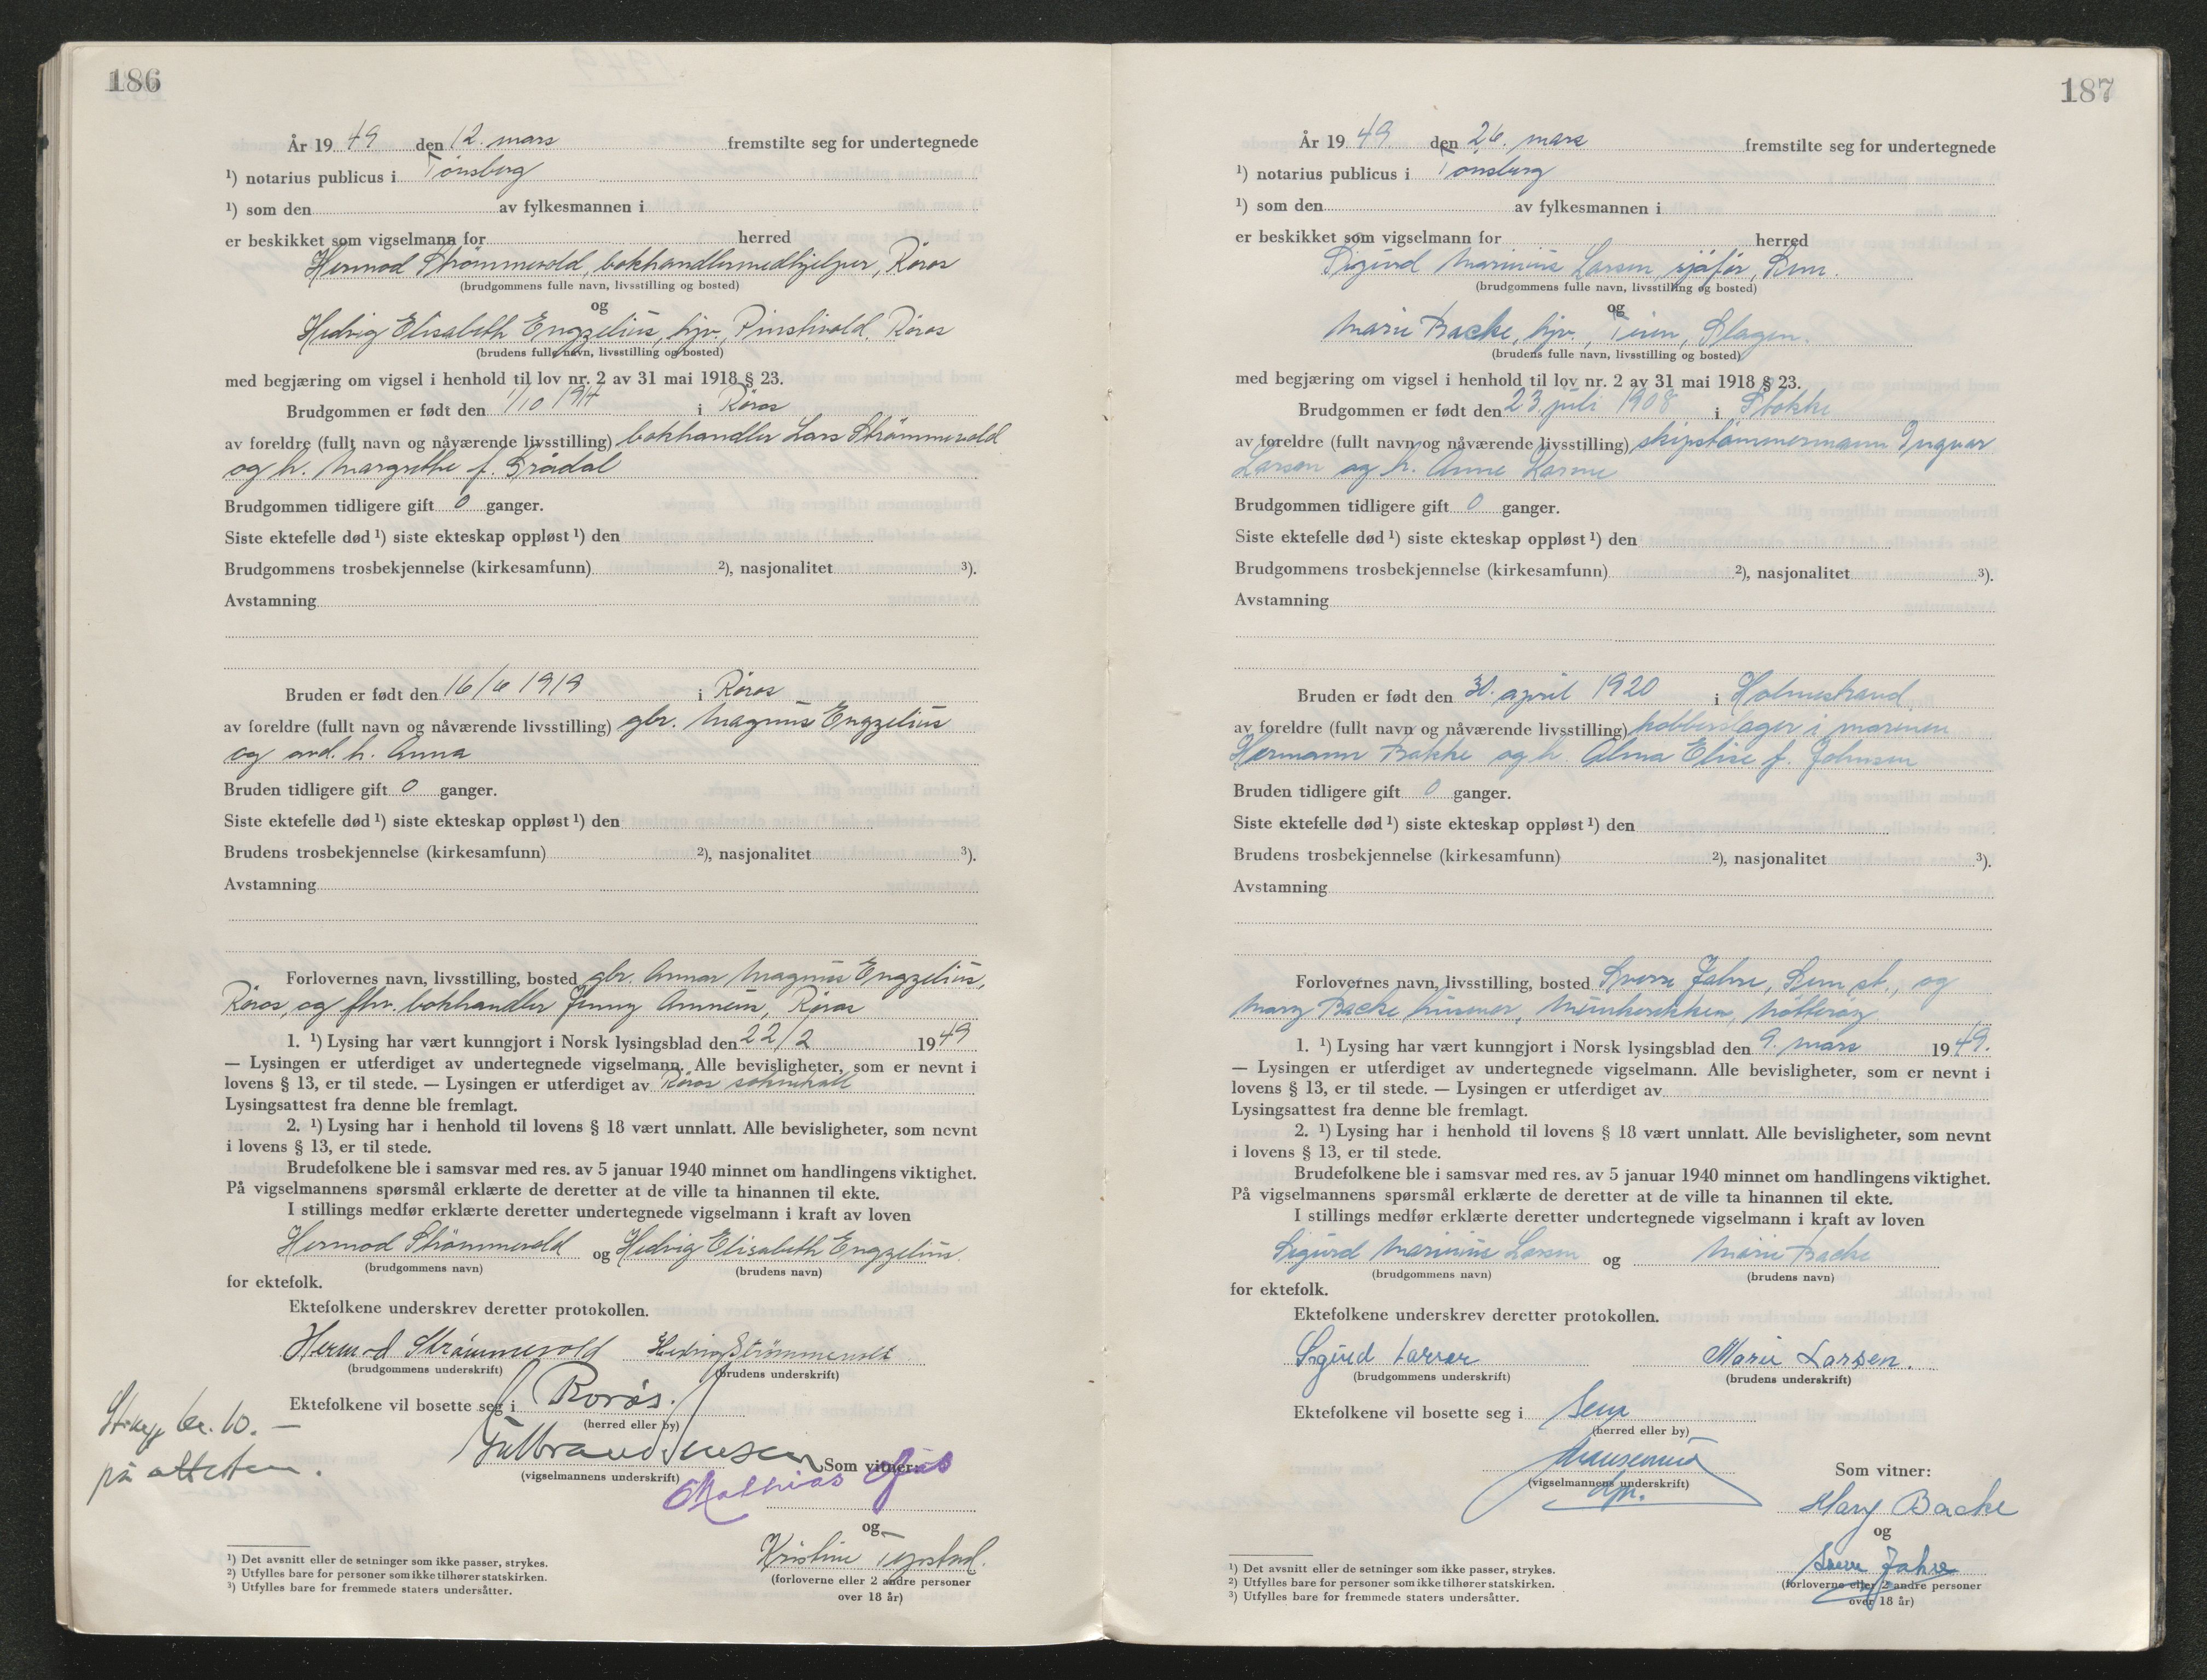 186
År 19 49 den 12. mars fremstilte seg for undertegnede
¹) notarius publicus i Tønsberg
¹) som den av fylkesmannen i
er beskikket som vigselmann for herred
Hermod Strømmevold, bokhandlermedhjelper, Röros
(brudgommens fulle navn, livsstilling og bosted)
og
Hedvig Elisabeth Engzelius, hjv., Röros
(brudens fulle navn, livsstilling og bosted)
med begjæring om vigsel i henhold til lov nr. 2 av 31 mai 1918 § 23.
Brudgommen er født den 1/10 1914 i Röros
av foreldre (fullt navn og nåværende livsstilling) bokhandler Lars Strømmevold
og h. Margrethe f. Grådal
Brudgommen tidligere gift 0 ganger.
Siste ektefelle død ¹) siste ekteskap oppløst ¹) den
Brudgommens trosbekjennelse (kirkesamfunn) ²), nasjonalitet ³).
Avstamning
Bruden er født den 16/6 1919 i Röros
av foreldre (fullt navn og nåværende livsstilling) gbr. Magnus Engzelius
og avd. h. Anna
Bruden tidligere gift 0 ganger.
Siste ektefelle død ¹) siste ekteskap oppløst ¹) den
Brudens trosbekjennelse (kirkesamfunn) ²), nasjonalitet ³).
Avstamning
Forlovernes navn, livsstilling, bosted gbr. Annar Magnus Engzelius,
Röros, og fhv. bokhandler Jenny Amneus, Röros
1. ¹) Lysing har vært kunngjort i Norsk lysingsblad den 22/2 19 49
— Lysingen er utferdiget av undertegnede vigselmann. Alle bevisligheter, som er nevnt i
lovens § 13, er til stede. — Lysingen er utferdiget av Röros soknekall
Lysingsattest fra denne ble fremlagt.
2. ¹) Lysing har i henhold til lovens § 18 vært unnlatt. Alle bevisligheter, som nevnt
i lovens § 13, er til stede.
Brudefolkene ble i samsvar med res. av 5 januar 1940 minnet om handlingens viktighet.
På vigselmannens spørsmål erklærte de deretter at de ville ta hinannen til ekte.
I stillings medfør erklærte deretter undertegnede vigselmann i kraft av loven
Hermod Strømmevold og Hedvig Elisabeth Engzelius
(brudgommens navn) (brudens navn)
for ektefolk.
Ektefolkene underskrev deretter protokollen.
Hermod Strømmevold Hedvig Strömmevold
(brudgommens underskrift) (brudens underskrift)
Ektefolkene vil bosette seg i Rorøs.
(herred eller by)
kr. 10. —
på attesten.
Gulbrand Jensen
(vigselmannens underskrift) Som vitner:
Mathias
og
Kristine
(forloverne eller 2 andre personer
over 18 år)
¹) Det avsnitt eller de setninger som ikke passer, strykes.
²) Utfylles bare for personer som ikke tilhører statskirken.
³) Utfylles bare for fremmede staters undersåtter.
187
År 19 49 den 26. mars fremstilte seg for undertegnede
¹) notarius publicus i Tønsberg
¹) som den av fylkesmannen i
er beskikket som vigselmann for herred
Sigurd Marinius Larsen, sjåför, Sem.
(brudgommens fulle navn, livsstilling og bosted)
og
Marie Backe, hjv., Teien, Slagen.
(brudens fulle navn, livsstilling og bosted)
med begjæring om vigsel i henhold til lov nr. 2 av 31 mai 1918 § 23.
Brudgommen er født den 23. juli 1908 i Stokke
av foreldre (fullt navn og nåværende livsstilling) skipstømmermann Ingvar
Larsen og h. Anne Karine
Brudgommen tidligere gift 0 ganger.
Siste ektefelle død ¹) siste ekteskap oppløst ¹) den
Brudgommens trosbekjennelse (kirkesamfunn) ²), nasjonalitet ³).
Avstamning
Bruden er født den 30. april 1920 i Holmestrand
av foreldre (fullt navn og nåværende livsstilling) kobberslager i marinen
Hermann Bakke og h. Alma Elise f. Johnsen
Bruden tidligere gift 0 ganger.
Siste ektefelle død ¹) siste ekteskap oppløst ¹) den
Brudens trosbekjennelse (kirkesamfunn) ²), nasjonalitet ³).
Avstamning
Forlovernes navn, livsstilling, bosted Sverre Jahre, Sem st., og
Mary Backe, Nøtterøy
1. ¹) Lysing har vært kunngjort i Norsk lysingsblad den 9. mars 19 49.
— Lysingen er utferdiget av undertegnede vigselmann. Alle bevisligheter, som er nevnt i
lovens § 13, er til stede. — Lysingen er utferdiget av
Lysingsattest fra denne ble fremlagt.
2. ¹) Lysing har i henhold til lovens § 18 vært unnlatt. Alle bevisligheter, som nevnt
i lovens § 13, er til stede.
Brudefolkene ble i samsvar med res. av 5 januar 1940 minnet om handlingens viktighet.
På vigselmannens spørsmål erklærte de deretter at de ville ta hinannen til ekte.
I stillings medfør erklærte deretter undertegnede vigselmann i kraft av loven
Sigurd Marinius Larsen og Marie Backe
(brudgommens navn) (brudens navn)
for ektefolk.
Ektefolkene underskrev deretter protokollen.
Sigurd Larsen Marie Larsen.
(brudgommens underskrift) (brudens underskrift)
Ektefolkene vil bosette seg i Sem
(herred eller by)
(vigselmannens underskrift)
Som vitner:
Mary Backe
og
Sverre Jahre
(forloverne eller 2 andre personer
over 18 år)
¹) Det avsnitt eller de setninger som ikke passer, strykes.
²) Utfylles bare for personer som ikke tilhører statskirken.
³) Utfylles bare for fremmede staters undersåtter.